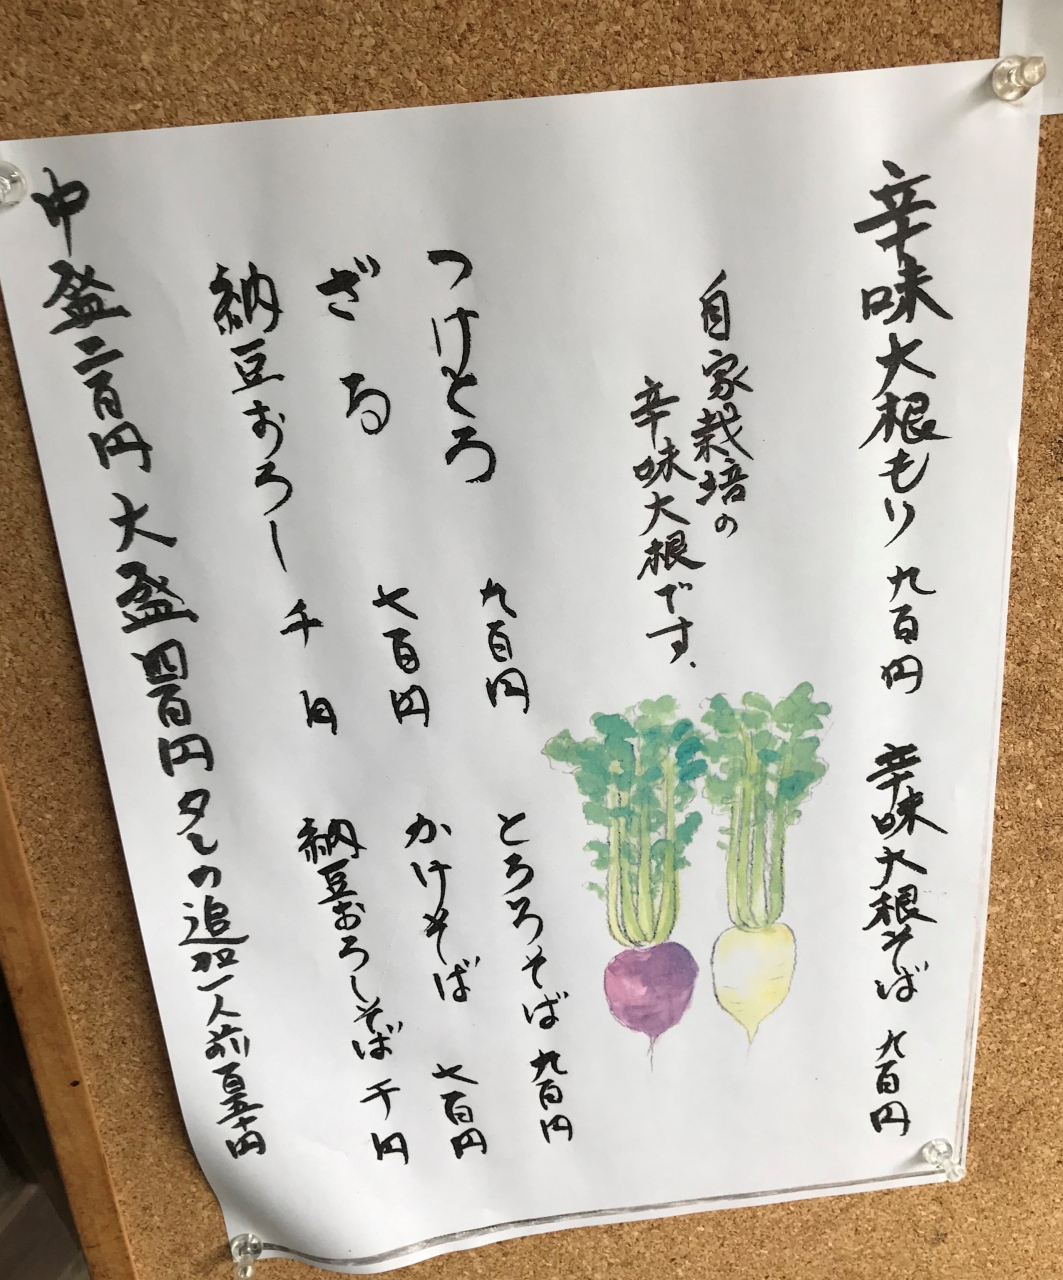 辛味大根もり 九百円 辛味大根そば 九百円
自家栽培の
辛味大根です、
つけとろ 九百円 とろろそば 九百円
ざる 七百円 かけそば 七百円
納豆おろし 千円 納豆おろしそば 千円
中盛二百円 大盛四百円 タレの追加一人前百五十円